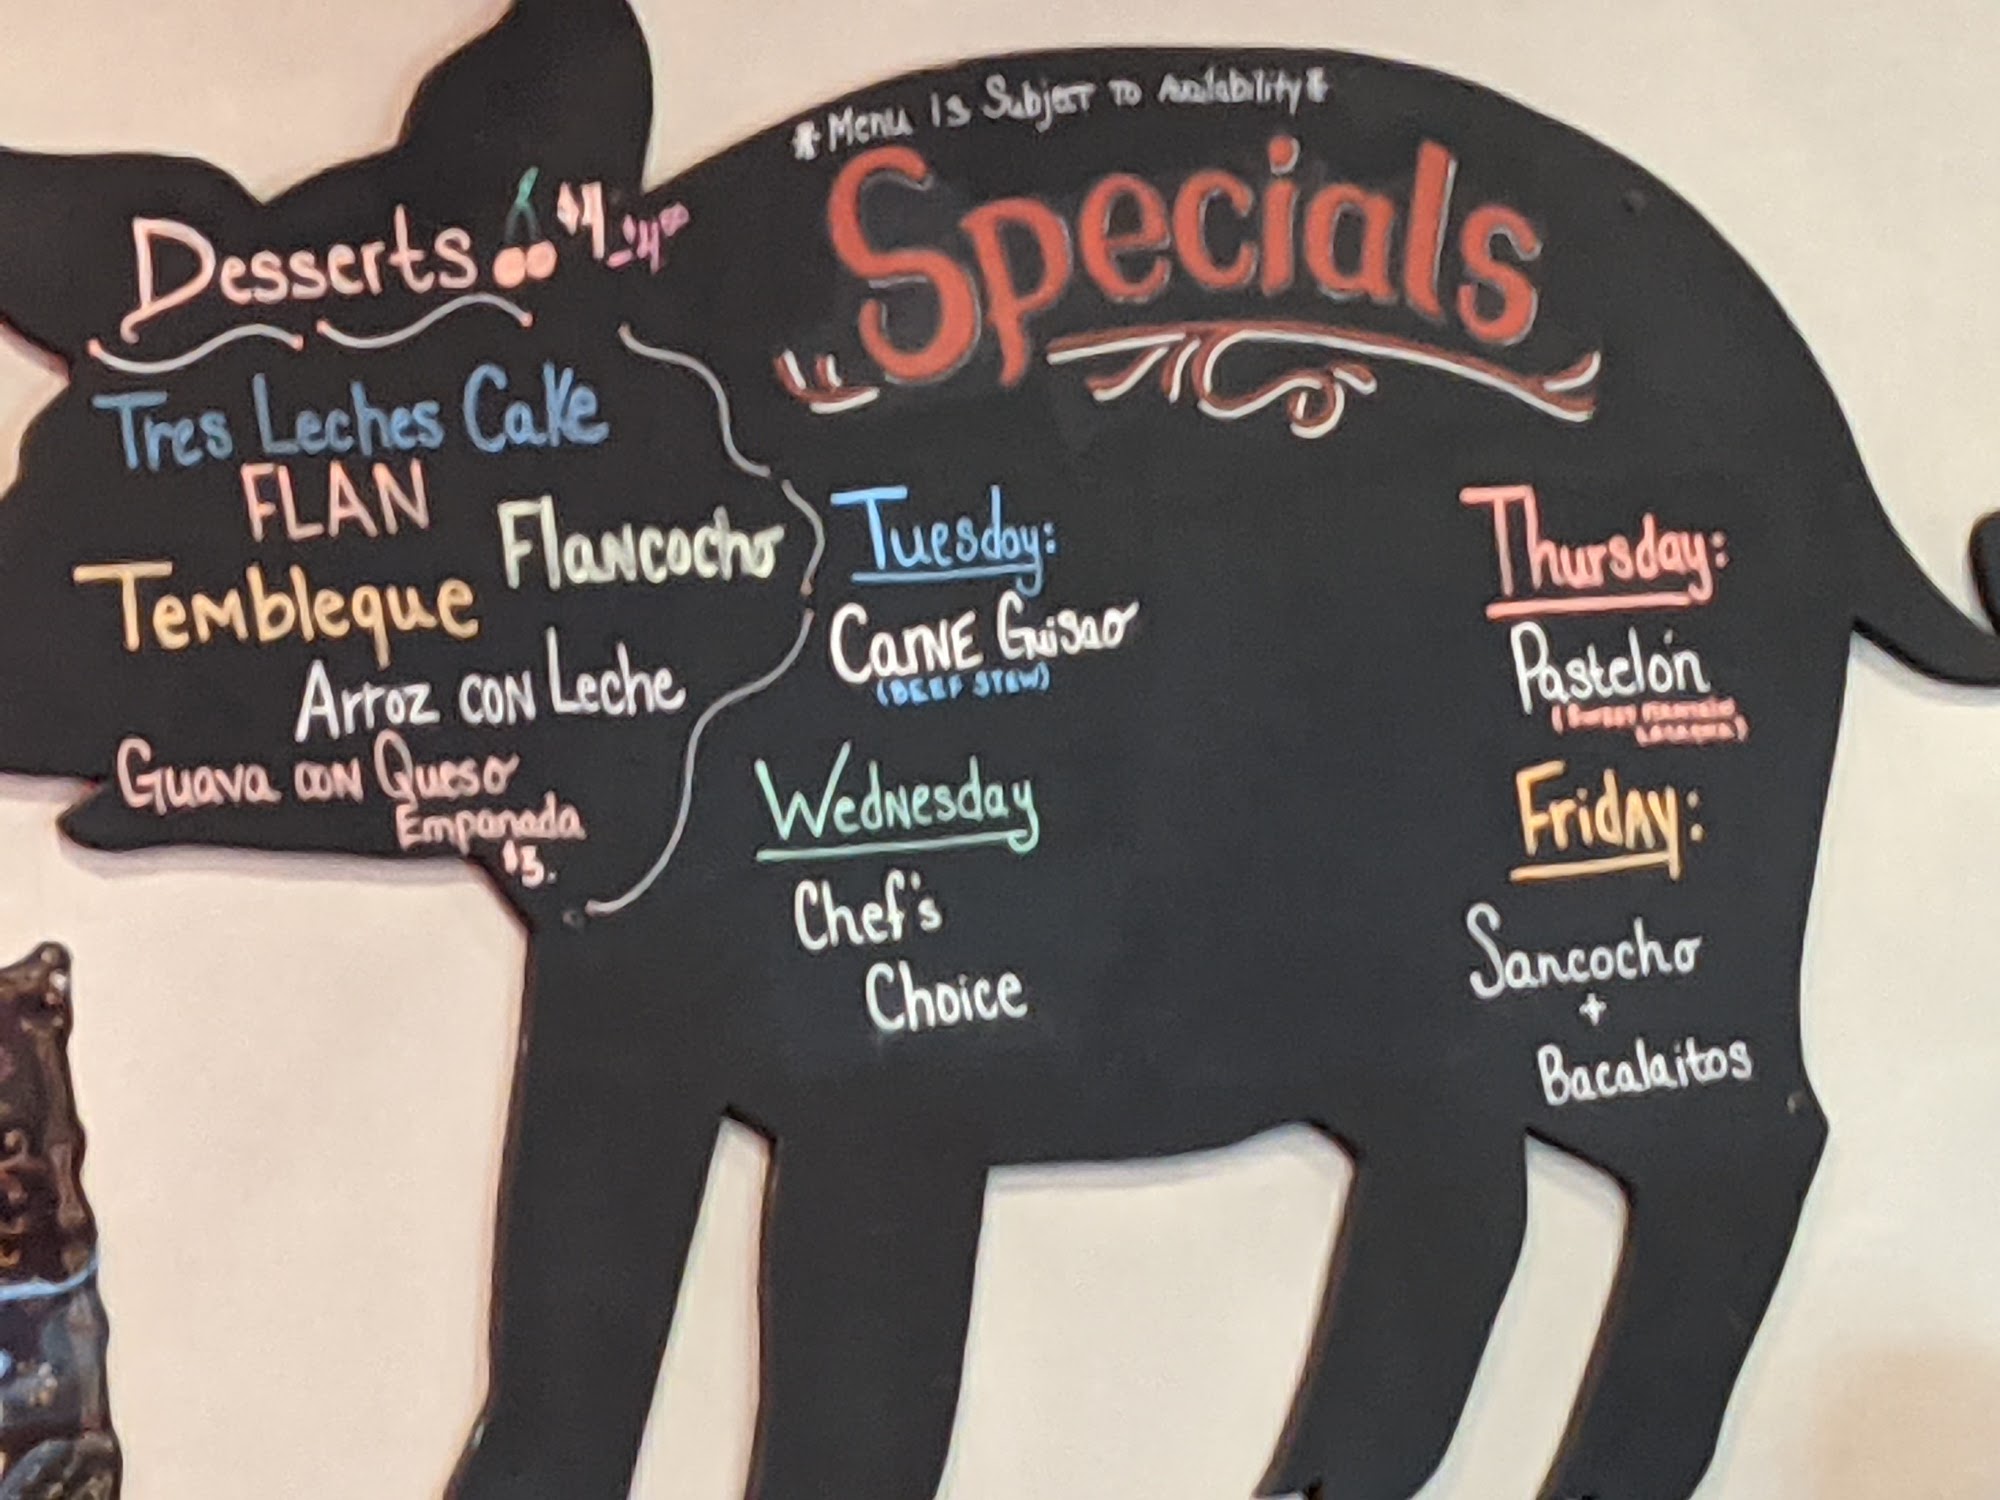 *Menu Is Subject To Availability*
Specials
Desserts $4 - $4⁰⁰
Tres Leches Cake
FLAN
Flancocho
Tembleque
Arroz con Leche
Guava con Queso
Empanada
$3.
Tuesday:
Carne Guisao
(BEEF STEW)
Wednesday
Chef's
Choice
Thursday:
Pastelón
(Sweet Plantain
Lasagna)
Friday:
Sancocho
+
Bacalaitos